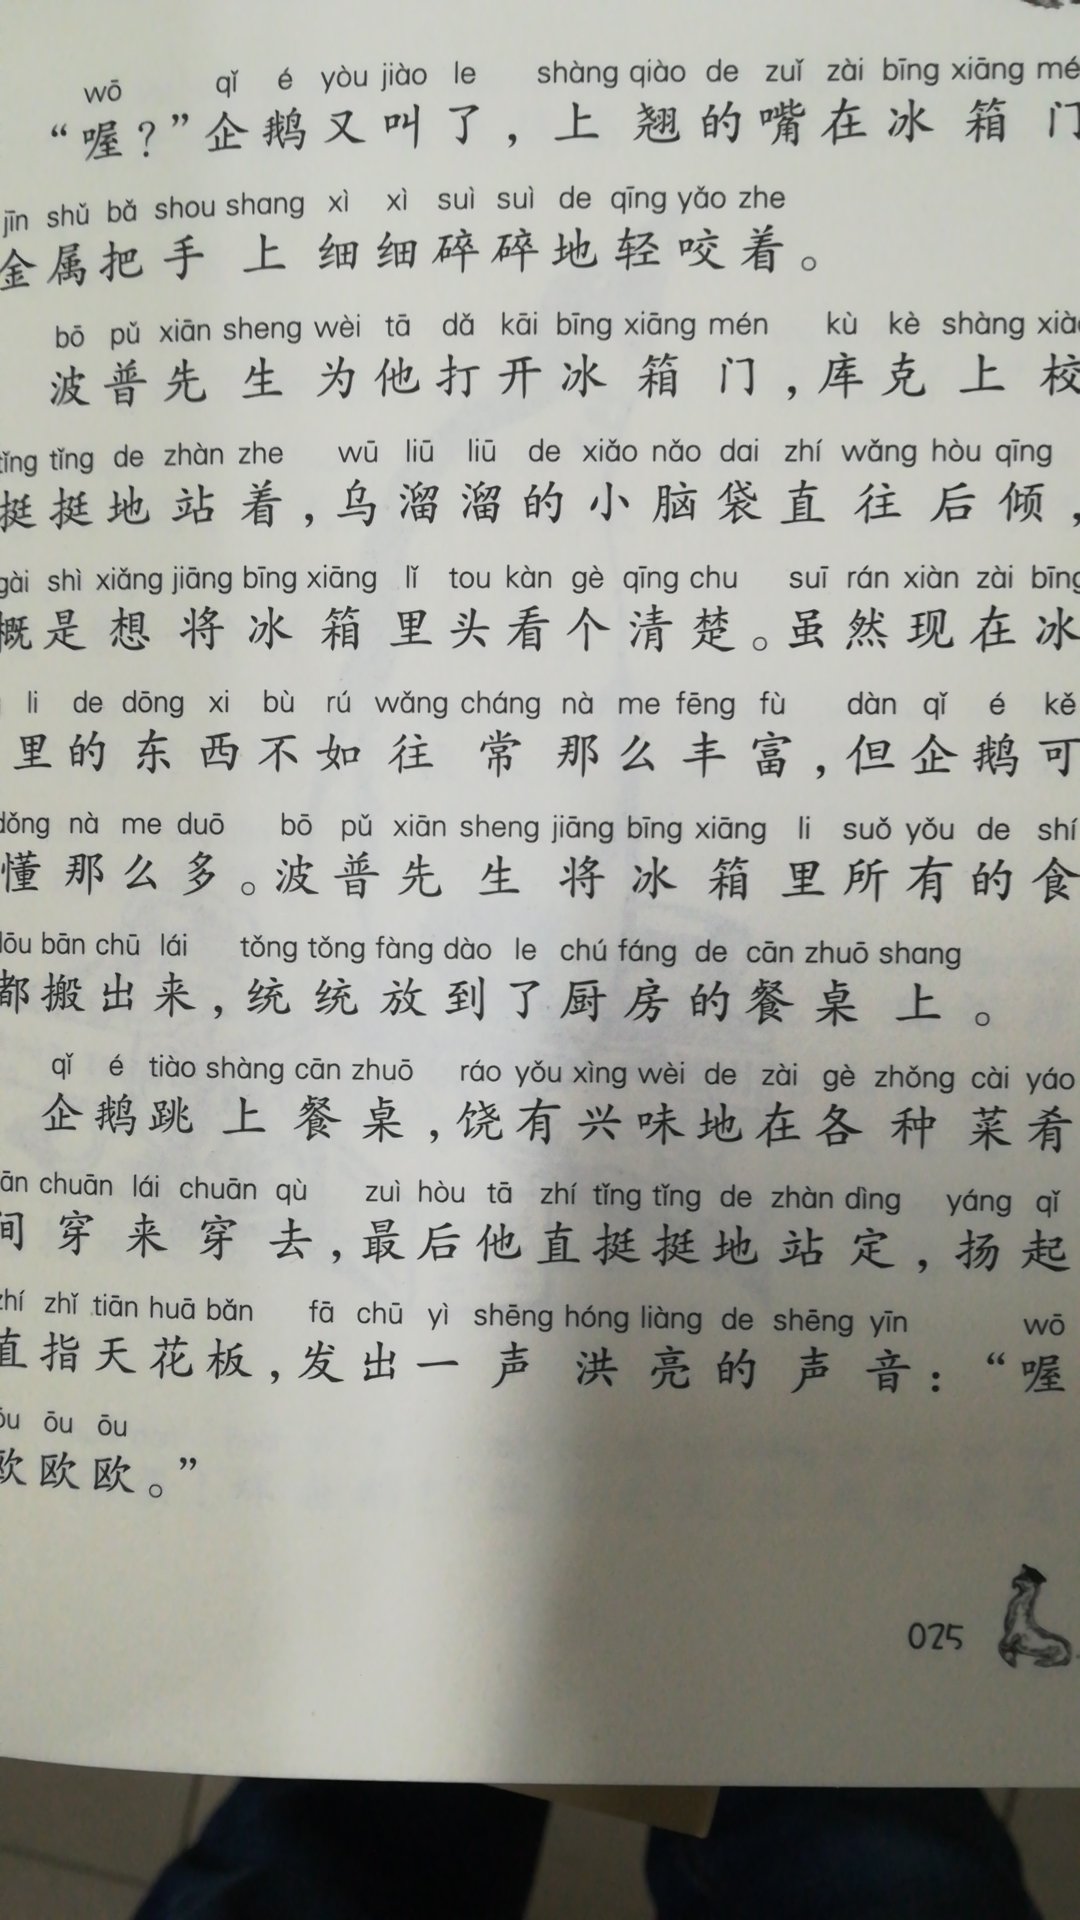 wō qǐ é yòu jiào le shàng qiào de zuǐ zài bīng xiāng mé
“喔？”企鹅又叫了，上翘的嘴在冰箱门
jīn shǔ bǎ shou shang xì xì suì suì de qīng yǎo zhe
金属把手上细细碎碎地轻咬着。
bō pǔ xiān sheng wèi tā dǎ kāi bīng xiāng mén kù kè shàng xiào
波普先生为他打开冰箱门，库克上校
tǐng tǐng de zhàn zhe wū liū liū de xiǎo nǎo dai zhí wǎng hòu qīng
挺挺地站着，乌溜溜的小脑袋直往后倾，
gài shì xiǎng jiāng bīng xiāng lǐ tou kàn gè qīng chu suī rán xiàn zài bīng
概是想将冰箱里头看个清楚。虽然现在冰
li de dōng xi bù rú wǎng cháng nà me fēng fù dàn qǐ é kě
里的东西不如往常那么丰富，但企鹅可
dǒng nà me duō bō pǔ xiān sheng jiāng bīng xiāng li suǒ yǒu de shí
懂那么多。波普先生将冰箱里所有的食
dōu bān chū lái tǒng tǒng fàng dào le chú fáng de cān zhuō shang
都搬出来，统统放到了厨房的餐桌上。
qǐ é tiào shàng cān zhuō ráo yǒu xìng wèi de zài gè zhǒng cài yáo
企鹅跳上餐桌，饶有兴味地在各种菜肴
ān chuān lái chuān qù zuì hòu tā zhí tǐng tǐng de zhàn dìng yáng qǐ
间穿来穿去，最后他直挺挺地站定，扬起
zhí zhǐ tiān huā bǎn fā chū yì shēng hóng liàng de shēng yīn wō
直指天花板，发出一声洪亮的声音：“喔
ōu ōu ōu
欧欧欧。”
025